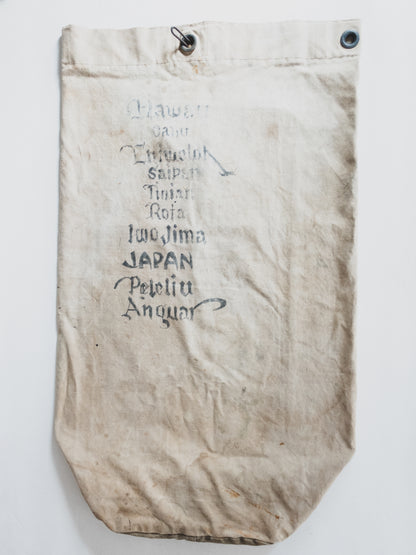 Hawaii
Oahu
Eniwetok
Saipan
Tinian
Rota
Iwo Jima
JAPAN
Peleliu
Anguar